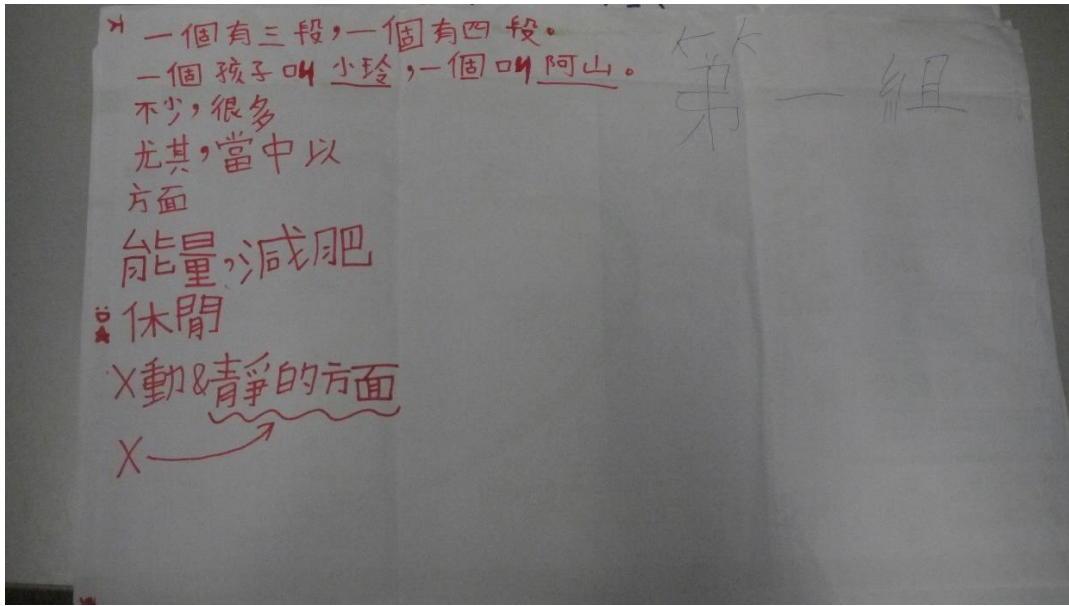 一個有三段，一個有四段。
一個孩子叫小玲，一個叫阿山。
不少，很多
尤其，當中以
方面
能量，減肥
休閒
X動&靜的方面
X
第一組